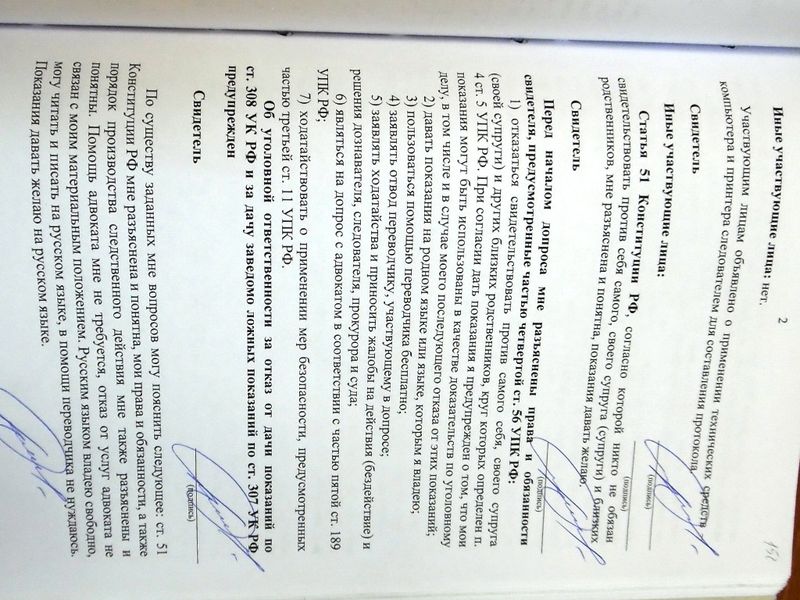 2
151
Иные участвующие лица: нет.
Участвующим лицам объявлено о применении технических средств
компьютера и принтера следователем для составления протокола.
Свидетель
(подпись)
Иные участвующие лица:
(подпись)
Статья 51 Конституции РФ, согласно которой никто не обязан
свидетельствовать против себя самого, своего супруга (супруги) и близких
родственников, мне разъяснена и понятна, показания давать желаю.
Свидетель
(подпись)
Перед началом допроса мне разъяснены права и обязанности
свидетеля, предусмотренные частью четвертой ст. 56 УПК РФ:
1) отказаться свидетельствовать против самого себя, своего супруга
(своей супруги) и других близких родственников, круг которых определен п.
4 ст. 5 УПК РФ. При согласии дать показания я предупрежден о том, что мои
показания могут быть использованы в качестве доказательств по уголовному
делу, в том числе и в случае моего последующего отказа от этих показаний;
2) давать показания на родном языке или языке, которым я владею;
3) пользоваться помощью переводчика бесплатно;
4) заявлять отвод переводчику, участвующему в допросе;
5) заявлять ходатайства и приносить жалобы на действия (бездействие) и
решения дознавателя, следователя, прокурора и суда;
6) являться на допрос с адвокатом в соответствии с частью пятой ст. 189
УПК РФ;
7) ходатайствовать о применении мер безопасности, предусмотренных
частью третьей ст. 11 УПК РФ.
Об уголовной ответственности за отказ от дачи показаний по
ст. 308 УК РФ и за дачу заведомо ложных показаний по ст. 307 УК РФ
предупрежден
Свидетель
(подпись)
По существу заданных мне вопросов могу пояснить следующее: ст. 51
Конституции РФ мне разъяснена и понятна, мои права и обязанности, а также
порядок производства следственного действия мне также разъяснены и
понятны. Помощь адвоката мне не требуется, отказ от услуг адвоката не
связан с моим материальным положением. Русским языком владею свободно,
могу читать и писать на русском языке, в помощи переводчика не нуждаюсь.
Показания давать желаю на русском языке.